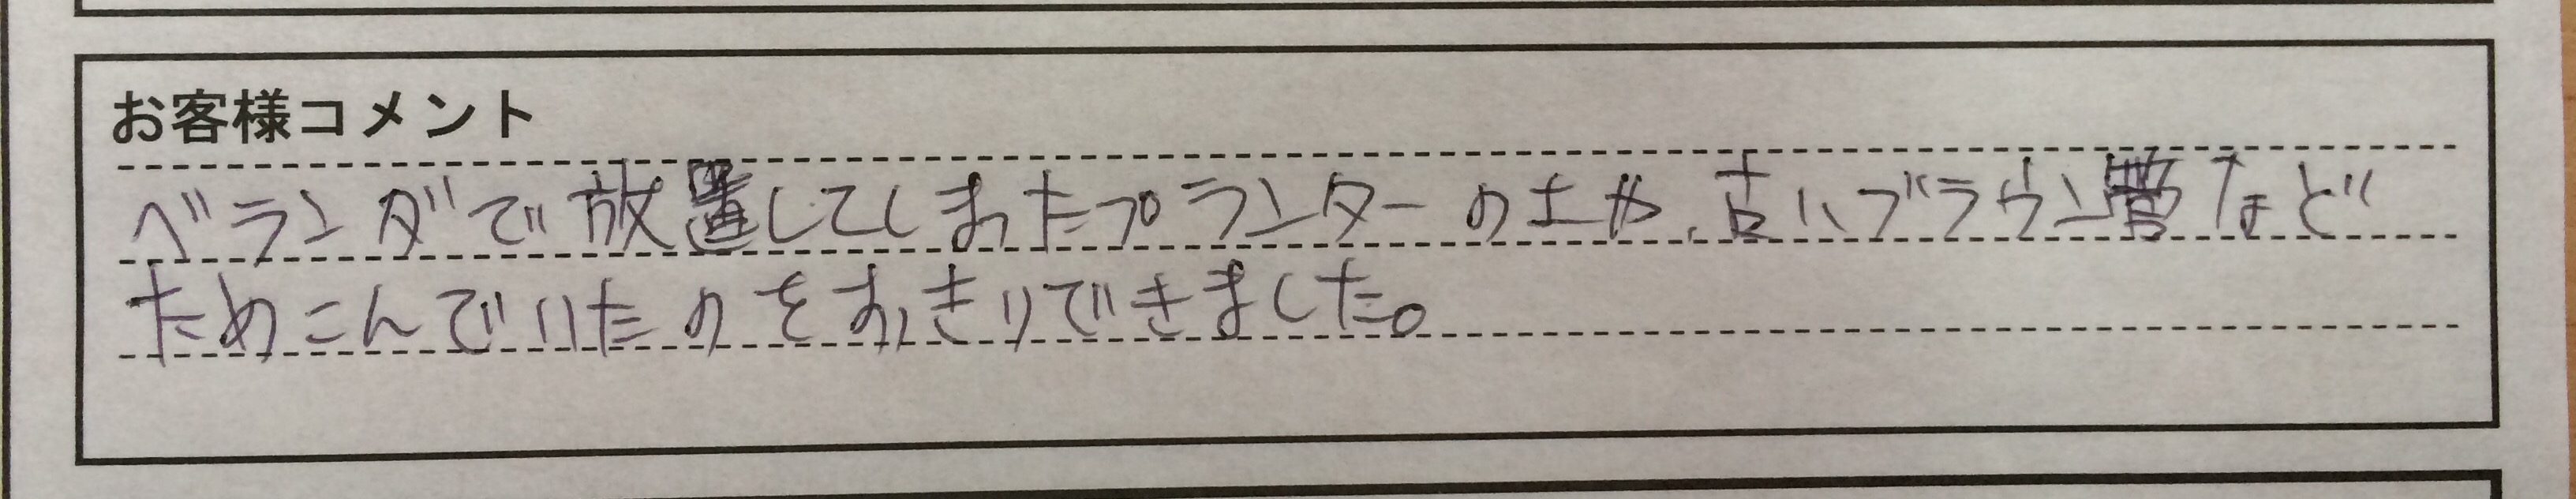 お客様コメント
ベランダで放置してしまったプランターの土や、古いブラウン管など
ためこんでいたのをすっきりできました。